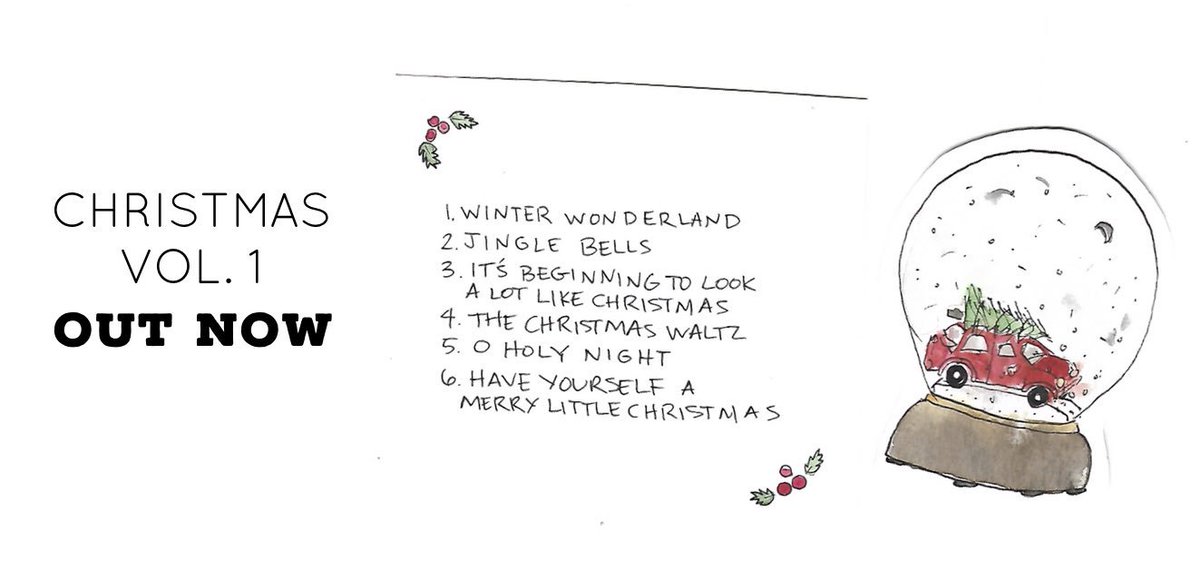 CHRISTMAS
VOL. 1
OUT NOW
1. WINTER WONDERLAND
2. JINGLE BELLS
3. IT'S BEGINNING TO LOOK
A LOT LIKE CHRISTMAS
4. THE CHRISTMAS WALTZ
5. O HOLY NIGHT
6. HAVE YOURSELF A
MERRY LITTLE CHRISTMAS